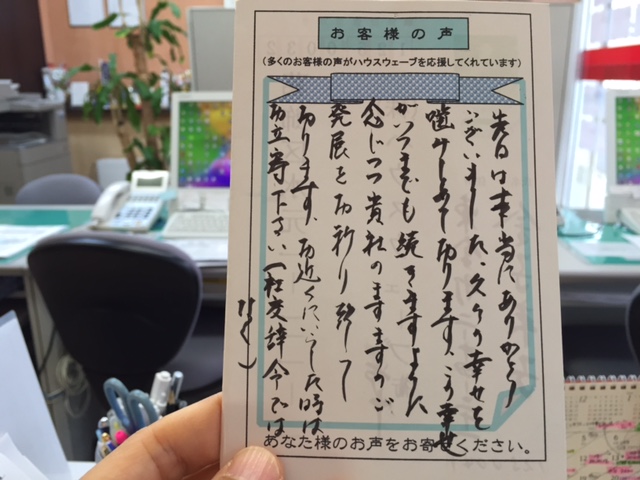 お客様の声
(多くのお客様の声がハウスウェーブを応援してくれています)
先日は本当にありがとう
ございました、久々の幸せを
噛みしめて居ります、この幸せ
がいつまでも続きますように
念じつつ貴社のますますのご
発展をお祈り致して
居ります、お近くにいらした時は
お立寄下さい(社交辞令では
なく)
あなた様のお声をお寄せください。